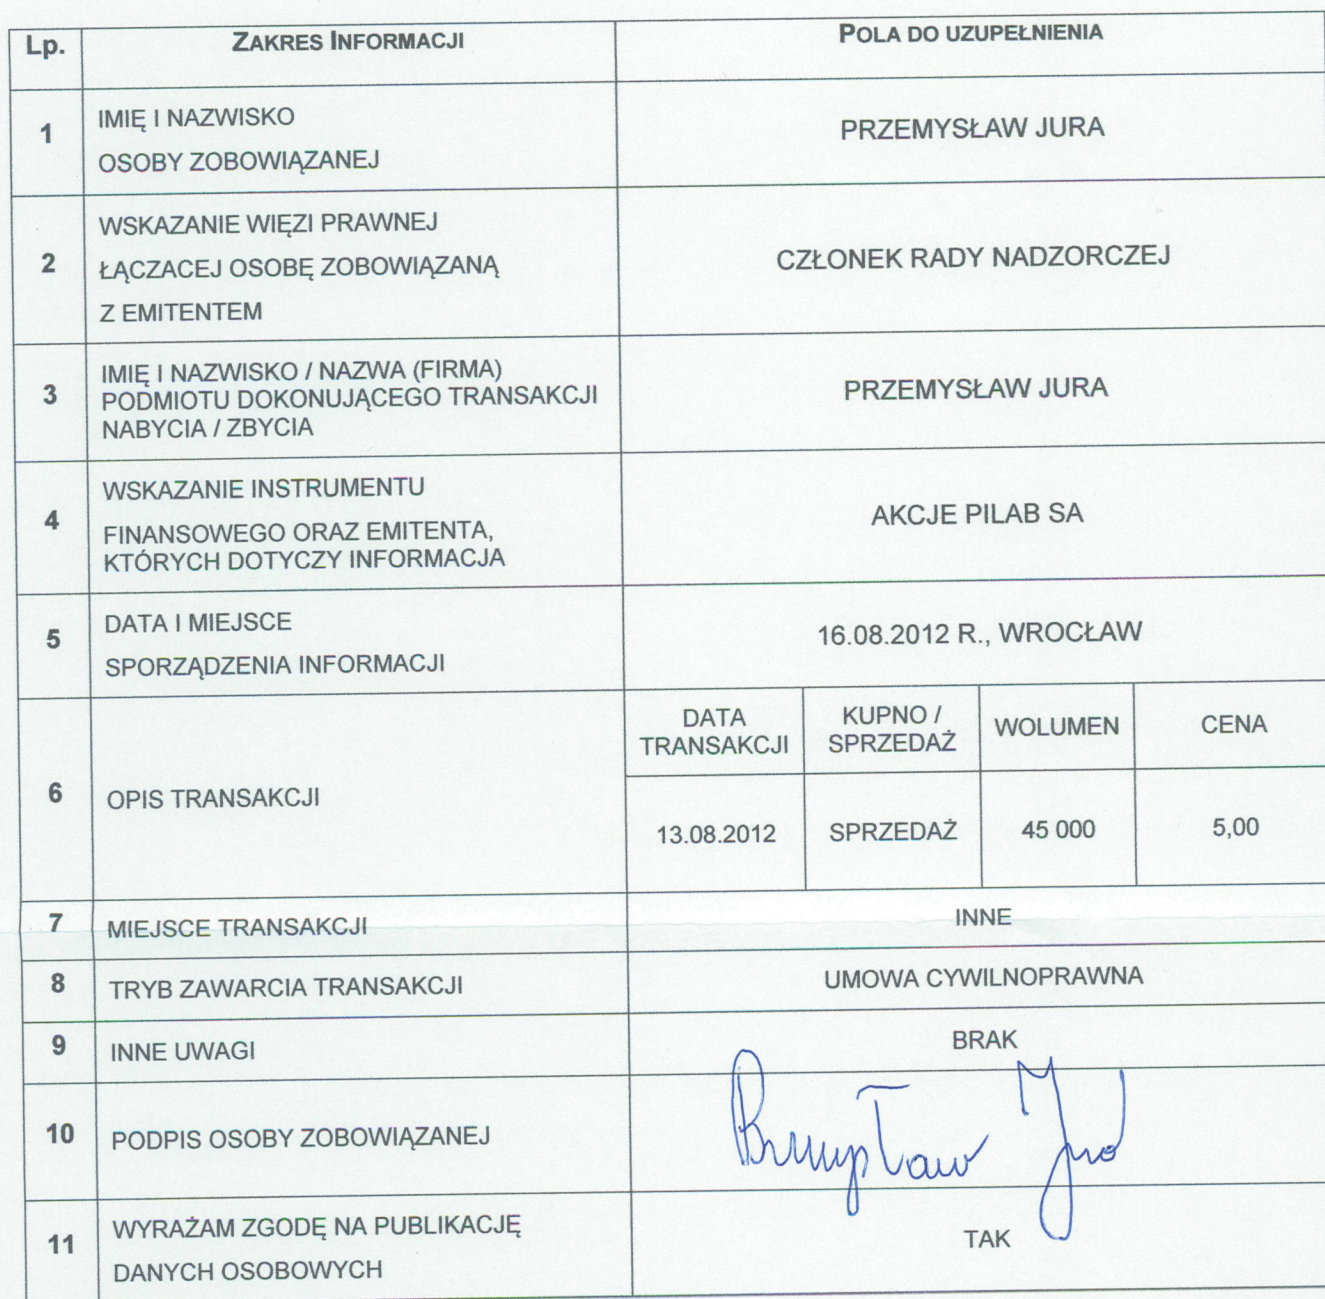 Lp. ZAKRES INFORMACJI POLA DO UZUPEŁNIENIA
1
IMIĘ I NAZWISKO
OSOBY ZOBOWIĄZANEJ
PRZEMYSŁAW JURA
2
WSKAZANIE WIĘZI PRAWNEJ
ŁĄCZACEJ OSOBĘ ZOBOWIĄZANĄ
Z EMITENTEM
CZŁONEK RADY NADZORCZEJ
3
IMIĘ I NAZWISKO / NAZWA (FIRMA)
PODMIOTU DOKONUJĄCEGO TRANSAKCJI
NABYCIA / ZBYCIA
PRZEMYSŁAW JURA
4
WSKAZANIE INSTRUMENTU
FINANSOWEGO ORAZ EMITENTA,
KTÓRYCH DOTYCZY INFORMACJA
AKCJE PILAB SA
5
DATA I MIEJSCE
SPORZĄDZENIA INFORMACJI
16.08.2012 R., WROCŁAW
6
OPIS TRANSAKCJI
DATA
TRANSAKCJI
KUPNO /
SPRZEDAŻ
WOLUMEN
CENA
13.08.2012 SPRZEDAŻ 45 000 5,00
7 MIEJSCE TRANSAKCJI INNE
8 TRYB ZAWARCIA TRANSAKCJI UMOWA CYWILNOPRAWNA
9 INNE UWAGI BRAK
10 PODPIS OSOBY ZOBOWIĄZANEJ Przemysław Jura
11
WYRAŻAM ZGODĘ NA PUBLIKACJĘ
DANYCH OSOBOWYCH
TAK